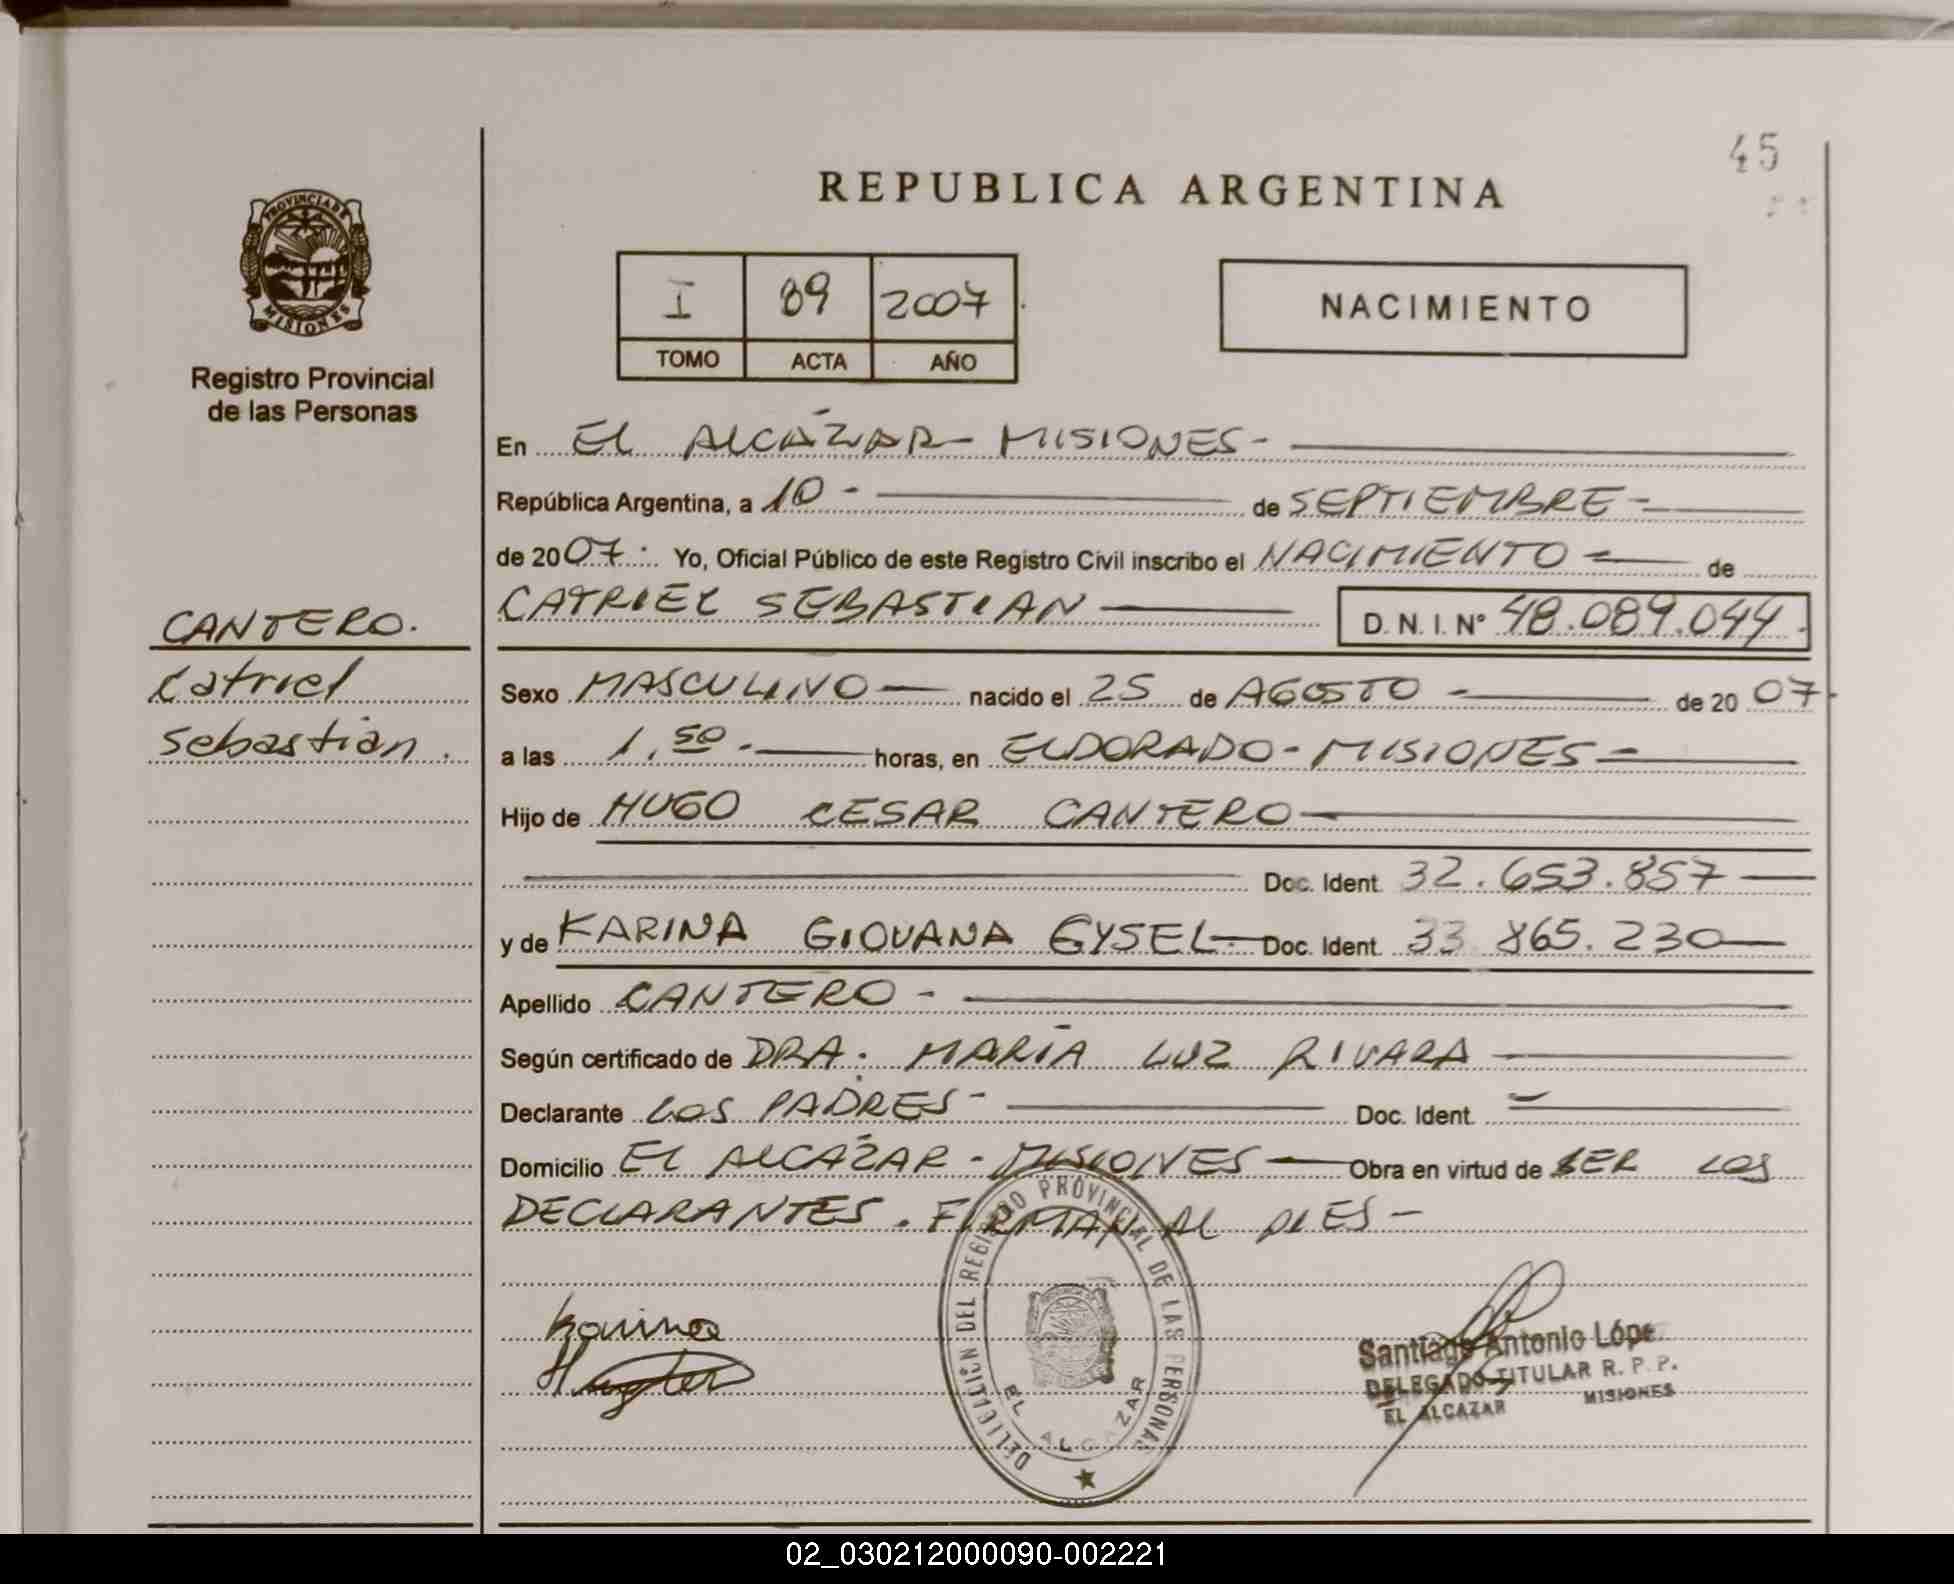 45
REPUBLICA ARGENTINA
PROVINCIA DE
MISIONES
Registro Provincial
de las Personas
I 89 2007
TOMO ACTA AÑO
NACIMIENTO
En EL ALCÁZAR - MISIONES -
República Argentina, a 10 - de SEPTIEMBRE -
de 2007. Yo, Oficial Público de este Registro Civil inscribo el NACIMIENTO - de
CATRIEL SEBASTIAN D. N. I. Nº 48.089.044.
CANTERO.
Catriel
Sebastián.
Sexo MASCULINO - nacido el 25 de AGOSTO - de 2007.
a las 1.50 - horas, en ELDORADO - MISIONES -
Hijo de HUGO CESAR CANTERO -
Doc. Ident. 32.653.857
y de KARINA GIOVANA GYSEL - Doc. Ident. 33.865.230
Apellido CANTERO -
Según certificado de DRA. MARÍA LUZ RIVARA
Declarante LOS PADRES - Doc. Ident. -
Domicilio EL ALCÁZAR - MISIONES - Obra en virtud de SER LOS
DECLARANTES. FIRMAN AL PIES -
DELEGACION DEL REGISTRO PROVINCIAL DE LAS PERSONAS
EL ALCAZAR
Karina
Santiago Antonio López
DELEGADO TITULAR R. P. P.
EL ALCAZAR MISIONES
02_030212000090-002221